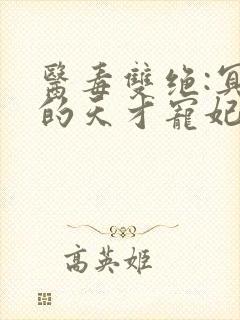 醫毒雙绝:冥
的天才寵妃
高英姬